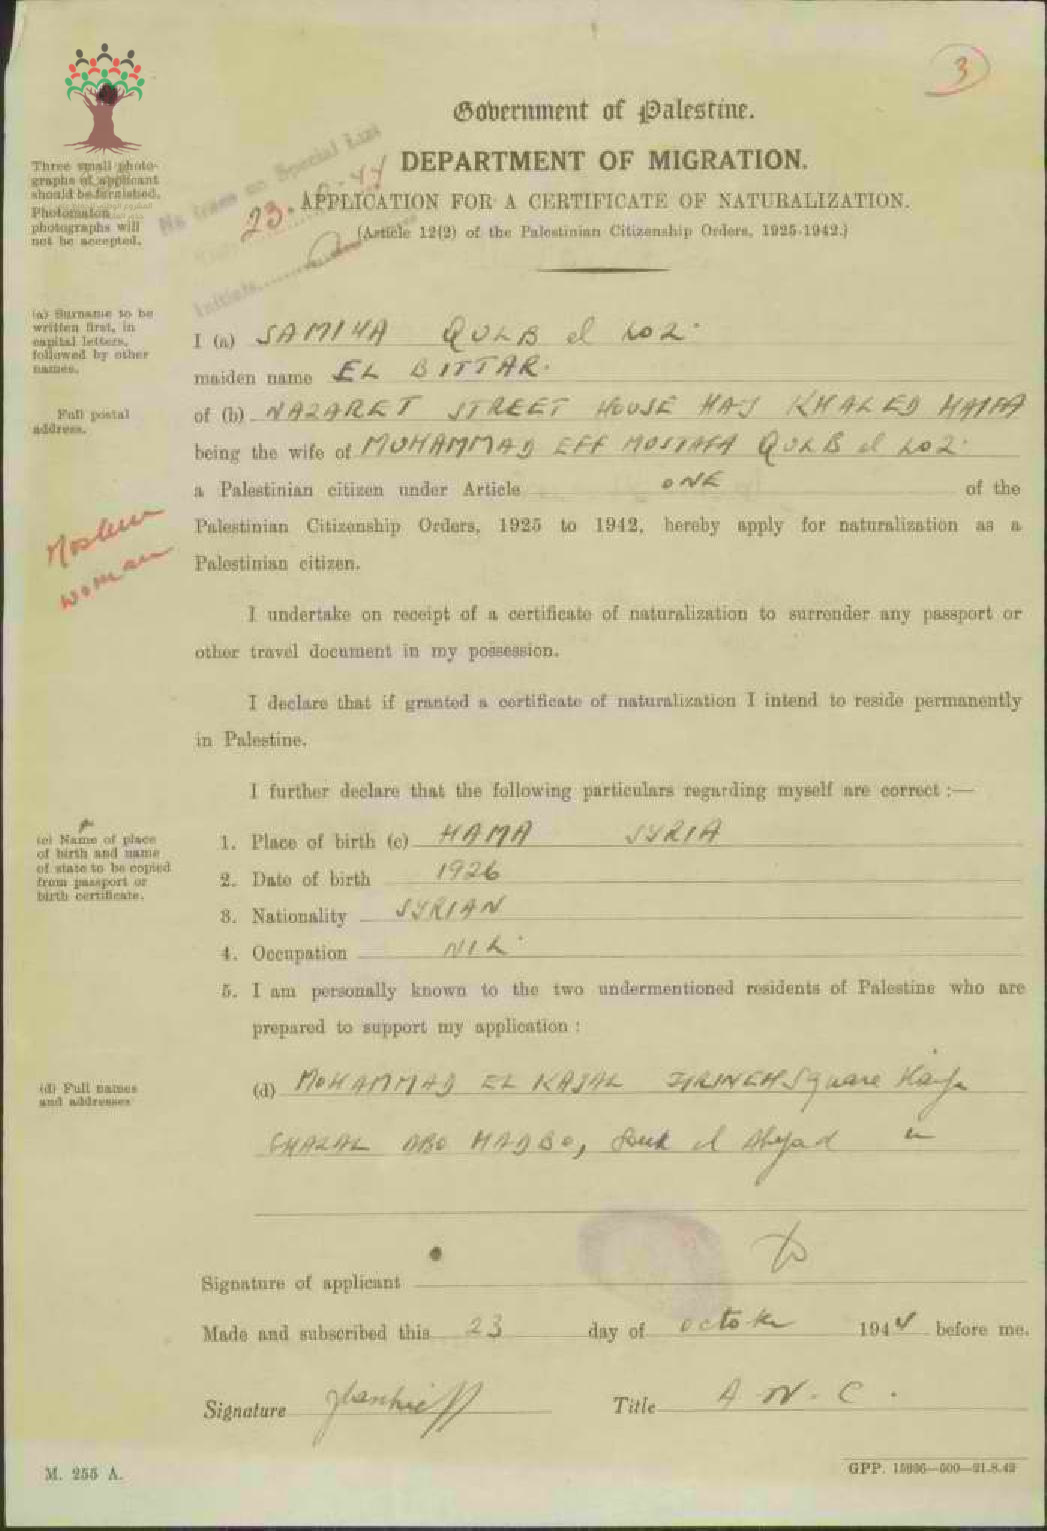 3
Government of Palestine.
DEPARTMENT OF MIGRATION.
APPLICATION FOR A CERTIFICATE OF NATURALIZATION.
(Article 12(2) of the Palestinian Citizenship Orders, 1925-1942.)
Three small photo-
graphs of applicant
should be furnished.
Photomaton
photographs will
not be accepted.
No trace on Special List
23. -44
Initials
(a) Surname to be
written first, in
capital letters,
followed by other
names.
I (a) SAMIHA QULB el LOZ
maiden name EL BITTAR.
Full postal
address.
of (b) NAZARET STREET HOUSE HAJ KHALED HAIFA
being the wife of MUHAMMAD EFF MOSTAFA QULB el LOZ
a Palestinian citizen under Article ONE of the
Palestinian Citizenship Orders, 1925 to 1942, hereby apply for naturalization as a
Palestinian citizen.
Moslem
woman
I undertake on receipt of a certificate of naturalization to surrender any passport or
other travel document in my possession.
I declare that if granted a certificate of naturalization I intend to reside permanently
in Palestine.
I further declare that the following particulars regarding myself are correct :—
(c) Name of place
of birth and name
of state to be copied
from passport or
birth certificate.
1. Place of birth (c) HAMA SYRIA
2. Date of birth 1926
3. Nationality SYRIAN
4. Occupation NIL
5. I am personally known to the two undermentioned residents of Palestine who are
prepared to support my application :
(d) Full names
and addresses
(d) MOHAMMAD EL Square Haifa
ABO Souk el Abyad
Signature of applicant
Made and subscribed this 23 day of october 1944 before me.
Signature Title A N. C.
M. 255 A.
GPP. 15936—500—21.8.42